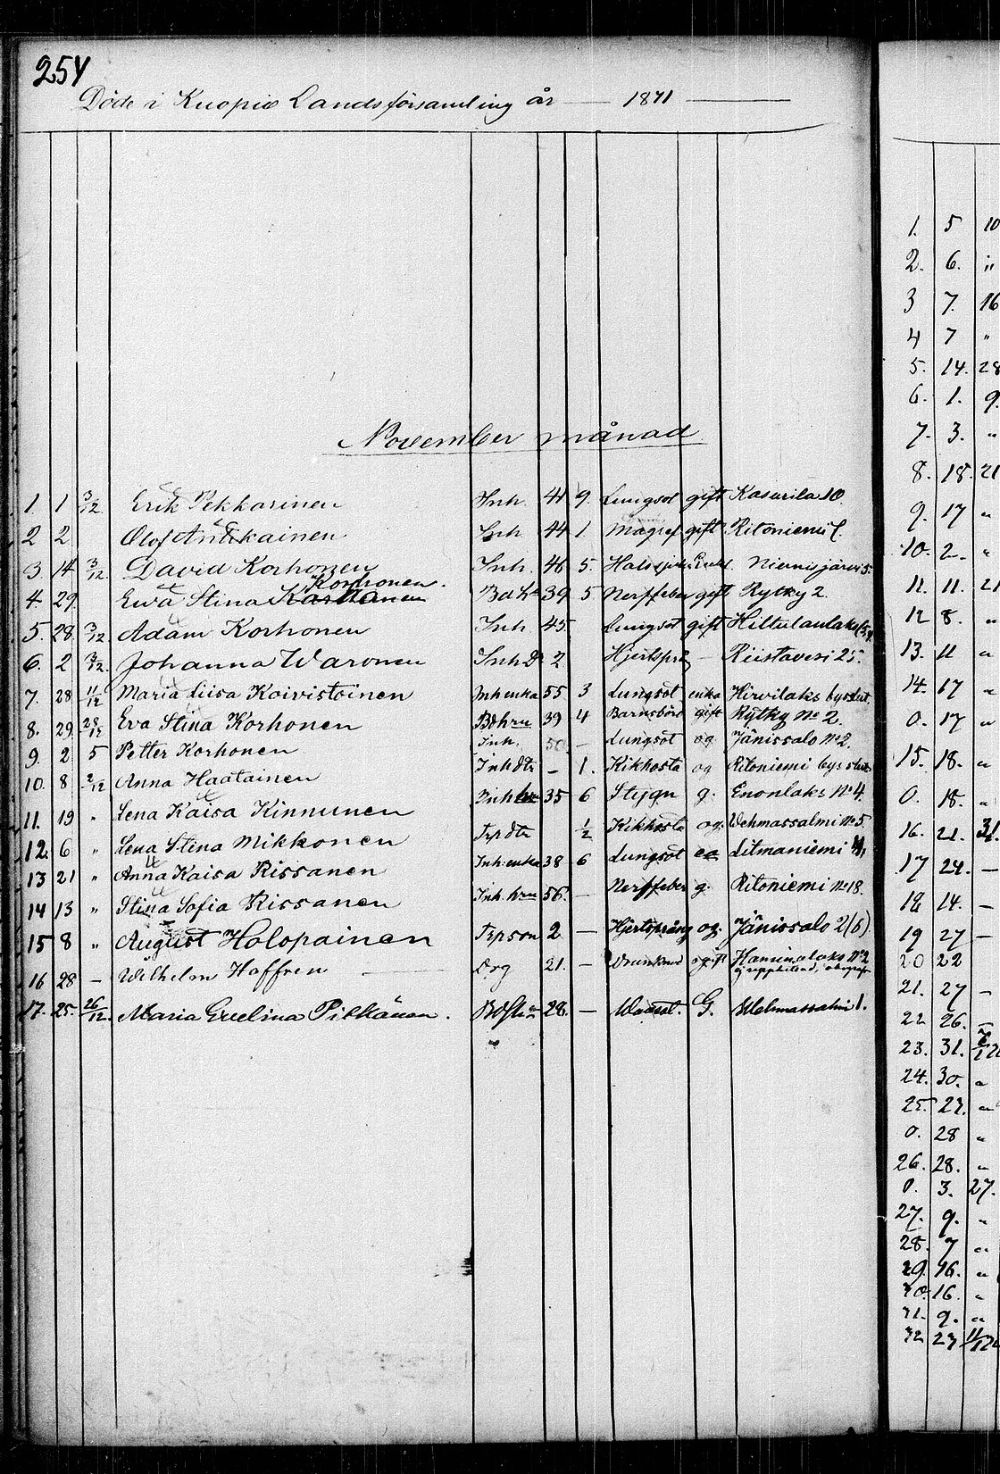 254
Döde i Kuopio Landsförsamling år — 1871 —
November månad
1 1 3/12 Erik Pekkarinen Inh. 41 9 Lungsot gift Kasurila 10.
2 2 Olof Antikainen Inh 44 1 gift Ritoniemi
3. 14 3/12 David Korhonen Inh. 46 5. Niemisjärvi 5.
Korhonen.
4. 29. Ewa Stina 39 5 Nerffeber gift Rytky 2.
5. 28. 3/12 Adam Korhonen Inh 45. Lungsot gift
6. 2 3/12 Johanna Waronen Inh D 2 Hjertspr — Riistavesi 25.
7. 28 11/12 Maria Liisa Koivistoinen Inh enka 55 3 Lungsot enka Hirvilaks
8. 29. Eva Stina Korhonen 39 4 Barnsbörd gift Rytky No 2.
9 2 5 Petter Korhonen Inh. 50 — Lungsot og Jänissalo No 2.
10. 8 2/12 Anna Haatainen Inh dtr — 1. Kikhosta og Ritoniemi
11. 19 " Lena Kaisa Kinnunen Inh 35 6 Stygn g. Enonlaks No 4.
12. 6 " Lena Stina Mikkonen dtr 1/2 Kikhosta og. Vehmassalmi No 5
13 21 " Anna Kaisa Rissanen Inh enka 38 6 Lungsot Litmaniemi
14 13 " Stina Sofia Rissanen Inh. hru 56. — Nerffeber g. Ritoniemi No 18.
15 8 " August Holopainen Trp son 2 — Hjertsprång og. Jänissalo 2(6)
16 28 — Wilhelm Hoffren Drg 21. — ogift
17. 25. 26/12. Maria Evelina Pitkänen. 28. — G. Wehmassalmi 1.
1. 5 10
2. 6. "
3 7. 16
4 7 "
5. 14. 28
6. 1. 9.
7. 3. "
8. 18. 21
9. 17 "
10. 2. "
11. 11. 21
12 8. "
13. 11 "
14. 17 "
0. 17 "
15. 18. "
0. 18. "
16. 21. 31.
17 24. —
18 14. —
19 27 —
20 22
21. 27 —
22 26. —
23. 31.
24. 30. "
25. 27. "
0. 28 "
26. 28. "
0. 3. 27.
27. 9. "
28. 7 "
29. 16. "
30. 16. "
31. 9. "
32 23